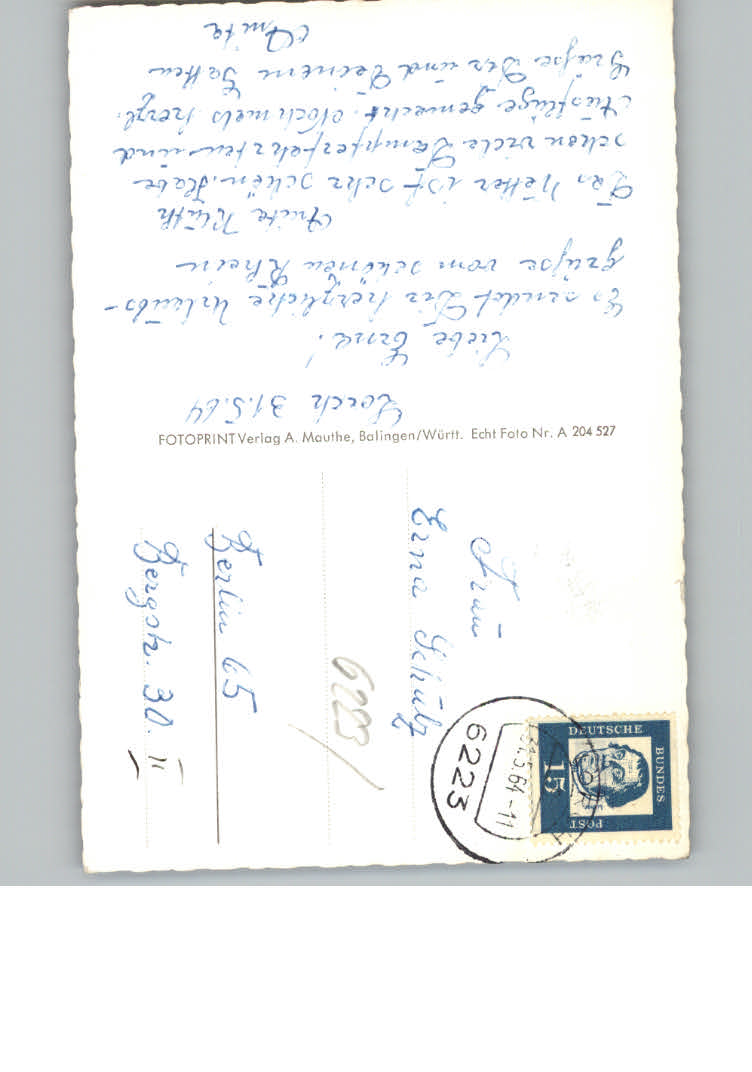 Lorch 31.5.64
Liebe Erna!
Es sendet Dir herzliche Urlaubs-
grüße vom schönen Rhein
Anita
Das Wetter ist sehr schön. Habe
schon viele Dampferfahrten und
Ausflüge gemacht. Nochmals herzl.
Grüße Dir und Deinem Gatten
Anita
FOTOPRINT Verlag A. Mauthe, Balingen/Württ. Echt Foto Nr. A 204 527
Frau
Erna Schulz
6223/
Berlin 65
Bergstr. 30. II
DEUTSCHE
BUNDES
POST
15
31.5.64-11
6223